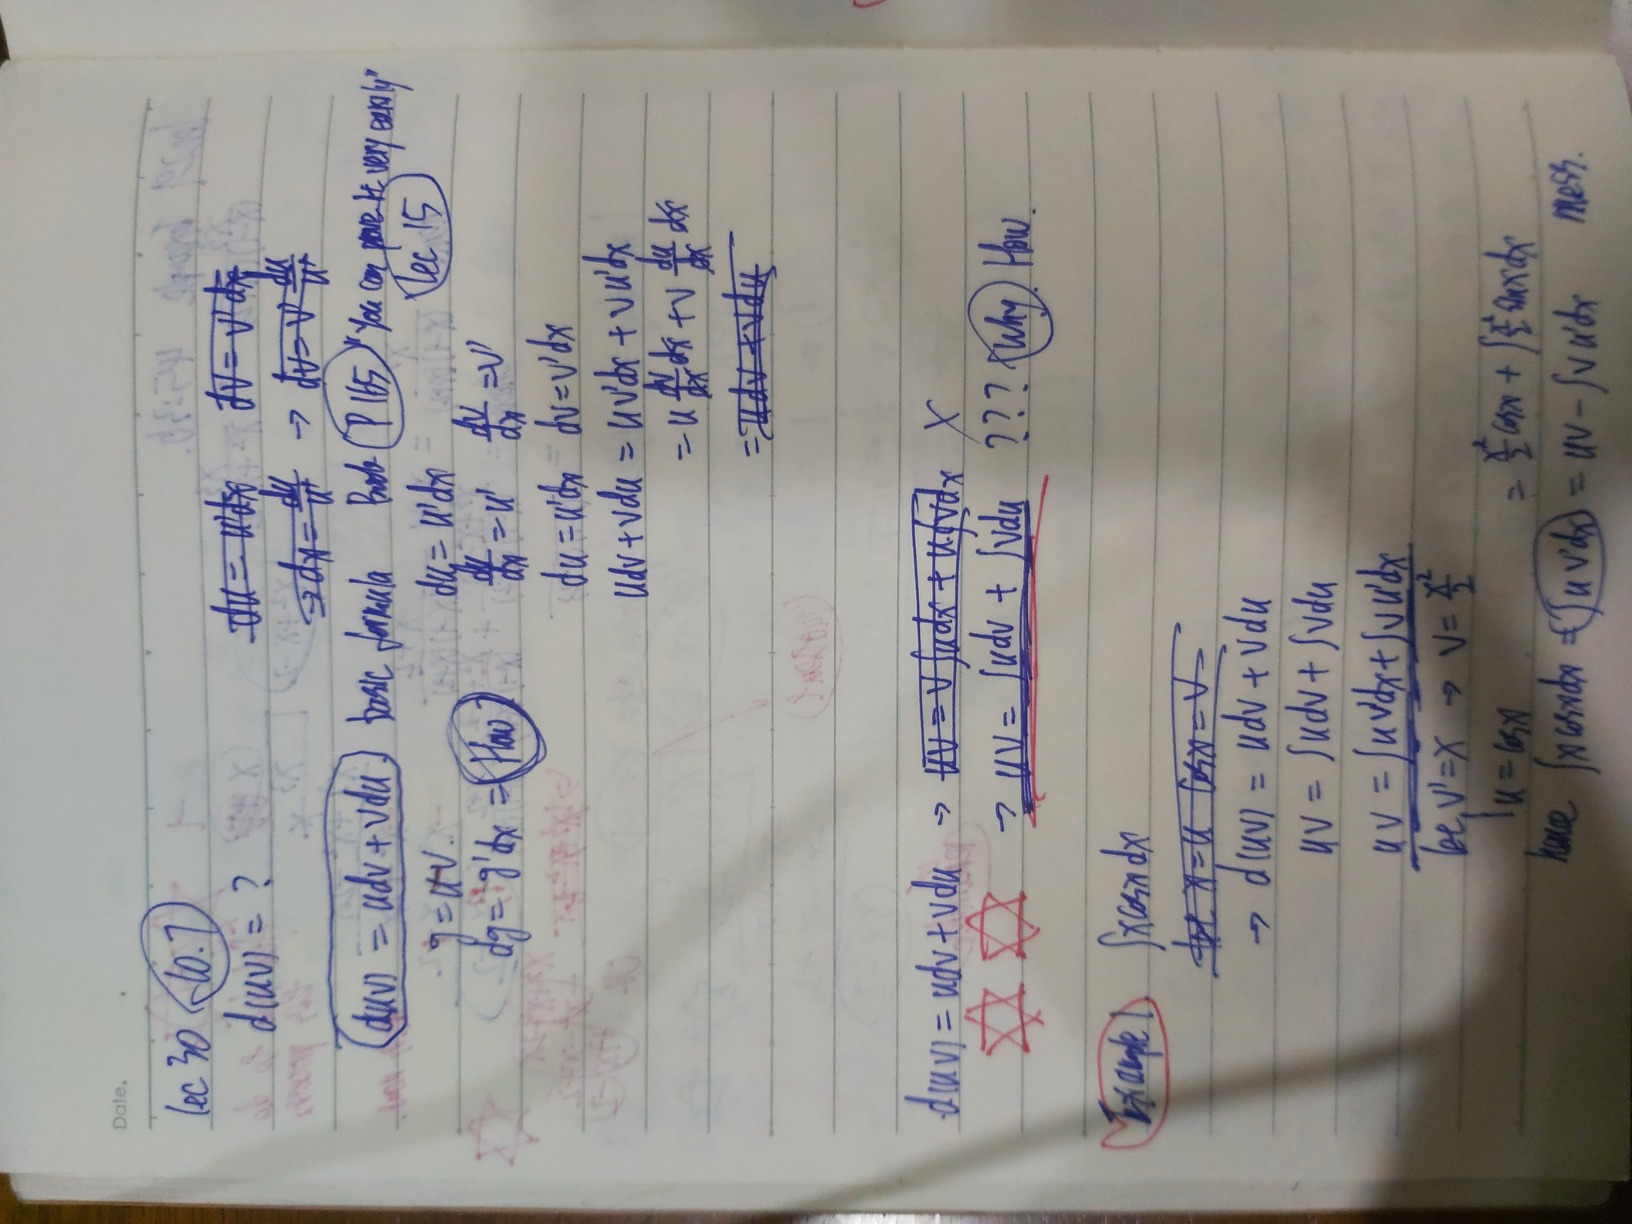 Date.
lec 30 10.7
d(uv) = ?
du = u'dx dv = v'dx
→ dx = du/u' → dv = v' du/u'
d(uv) = udv + vdu basic formula Book P165 "You can prove it very easily"
Lec 15
g = uv.
du = u'dx
dg = g'dx = How?
du/dx = u' dv/dx = v'
du = u'dx dv = v'dx
udv + vdu = uv'dx + vu'dx
= u dv/dx dx + v du/dx dx
= udv + vdu
d(uv) = udv + vdu → uv = v∫udx + u∫vdx X
→ uv = ∫udv + ∫vdu ??? Why. How.
Example 1 ∫xcosxdx
let x = u cosx = v
→ d(uv) = udv + vdu
uv = ∫udv + ∫vdu
uv = ∫uv'dx + ∫vu'dx
let v' = x → v = x²/2
u = cosx
= x²/2 cosx + ∫x²/2 sinxdx
hence ∫xcosxdx = ∫uv'dx = uv - ∫vu'dx mess.